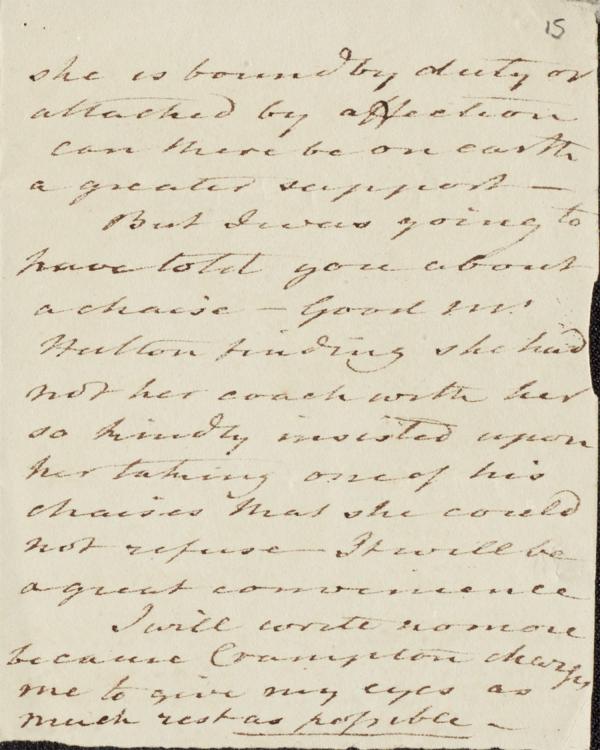 15
she is bound by duty or
attached by affection
can there be on earth
a greater support —
But I was going to
have told you about
a chaise — Good Mr.
Hulton finding she had
not her coach with her
so kindly insisted upon
her taking one of his
chaises that she could
not refuse — It will be
a great convenience
I will write no more
because Crampton charges
me to give my eyes as
much rest as possible —